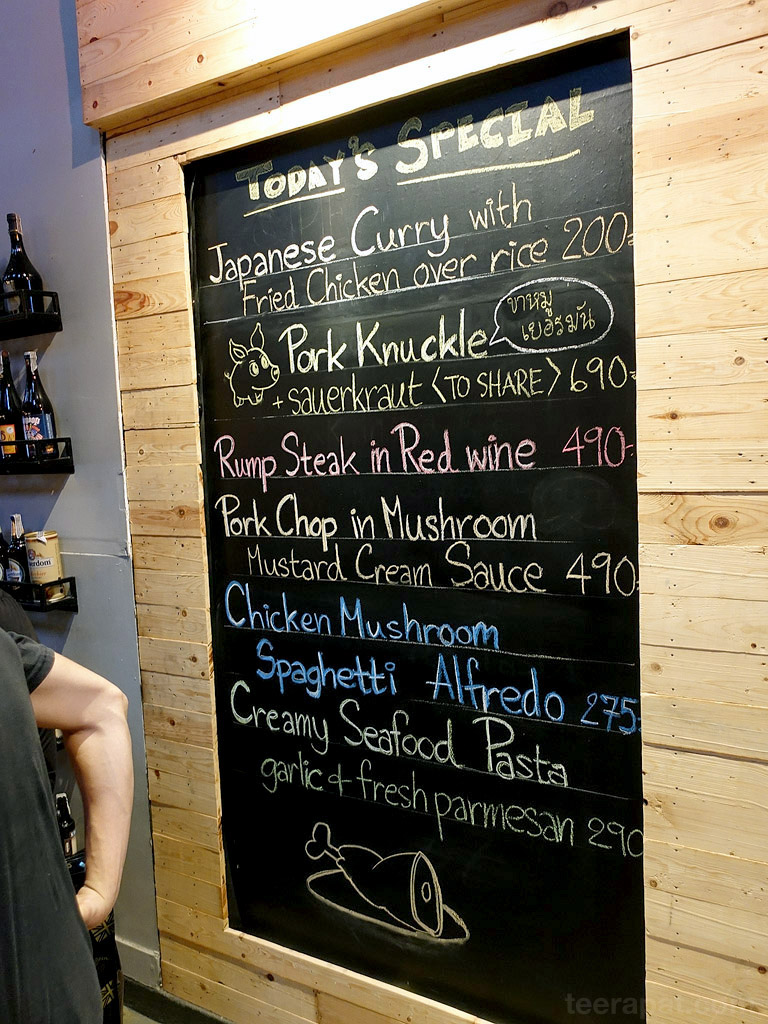 TODAY'S SPECIAL
Japanese Curry with
Fried Chicken over rice 200.-
Pork Knuckle
ขาหมู
เยอรมัน
+ sauerkraut <TO SHARE> 690.-
Rump Steak in Red wine 490.-
Pork Chop in Mushroom
Mustard Cream Sauce 490
Chicken Mushroom
Spaghetti Alfredo 275.-
Creamy Seafood Pasta
garlic + fresh parmesan 290
teerapat.com